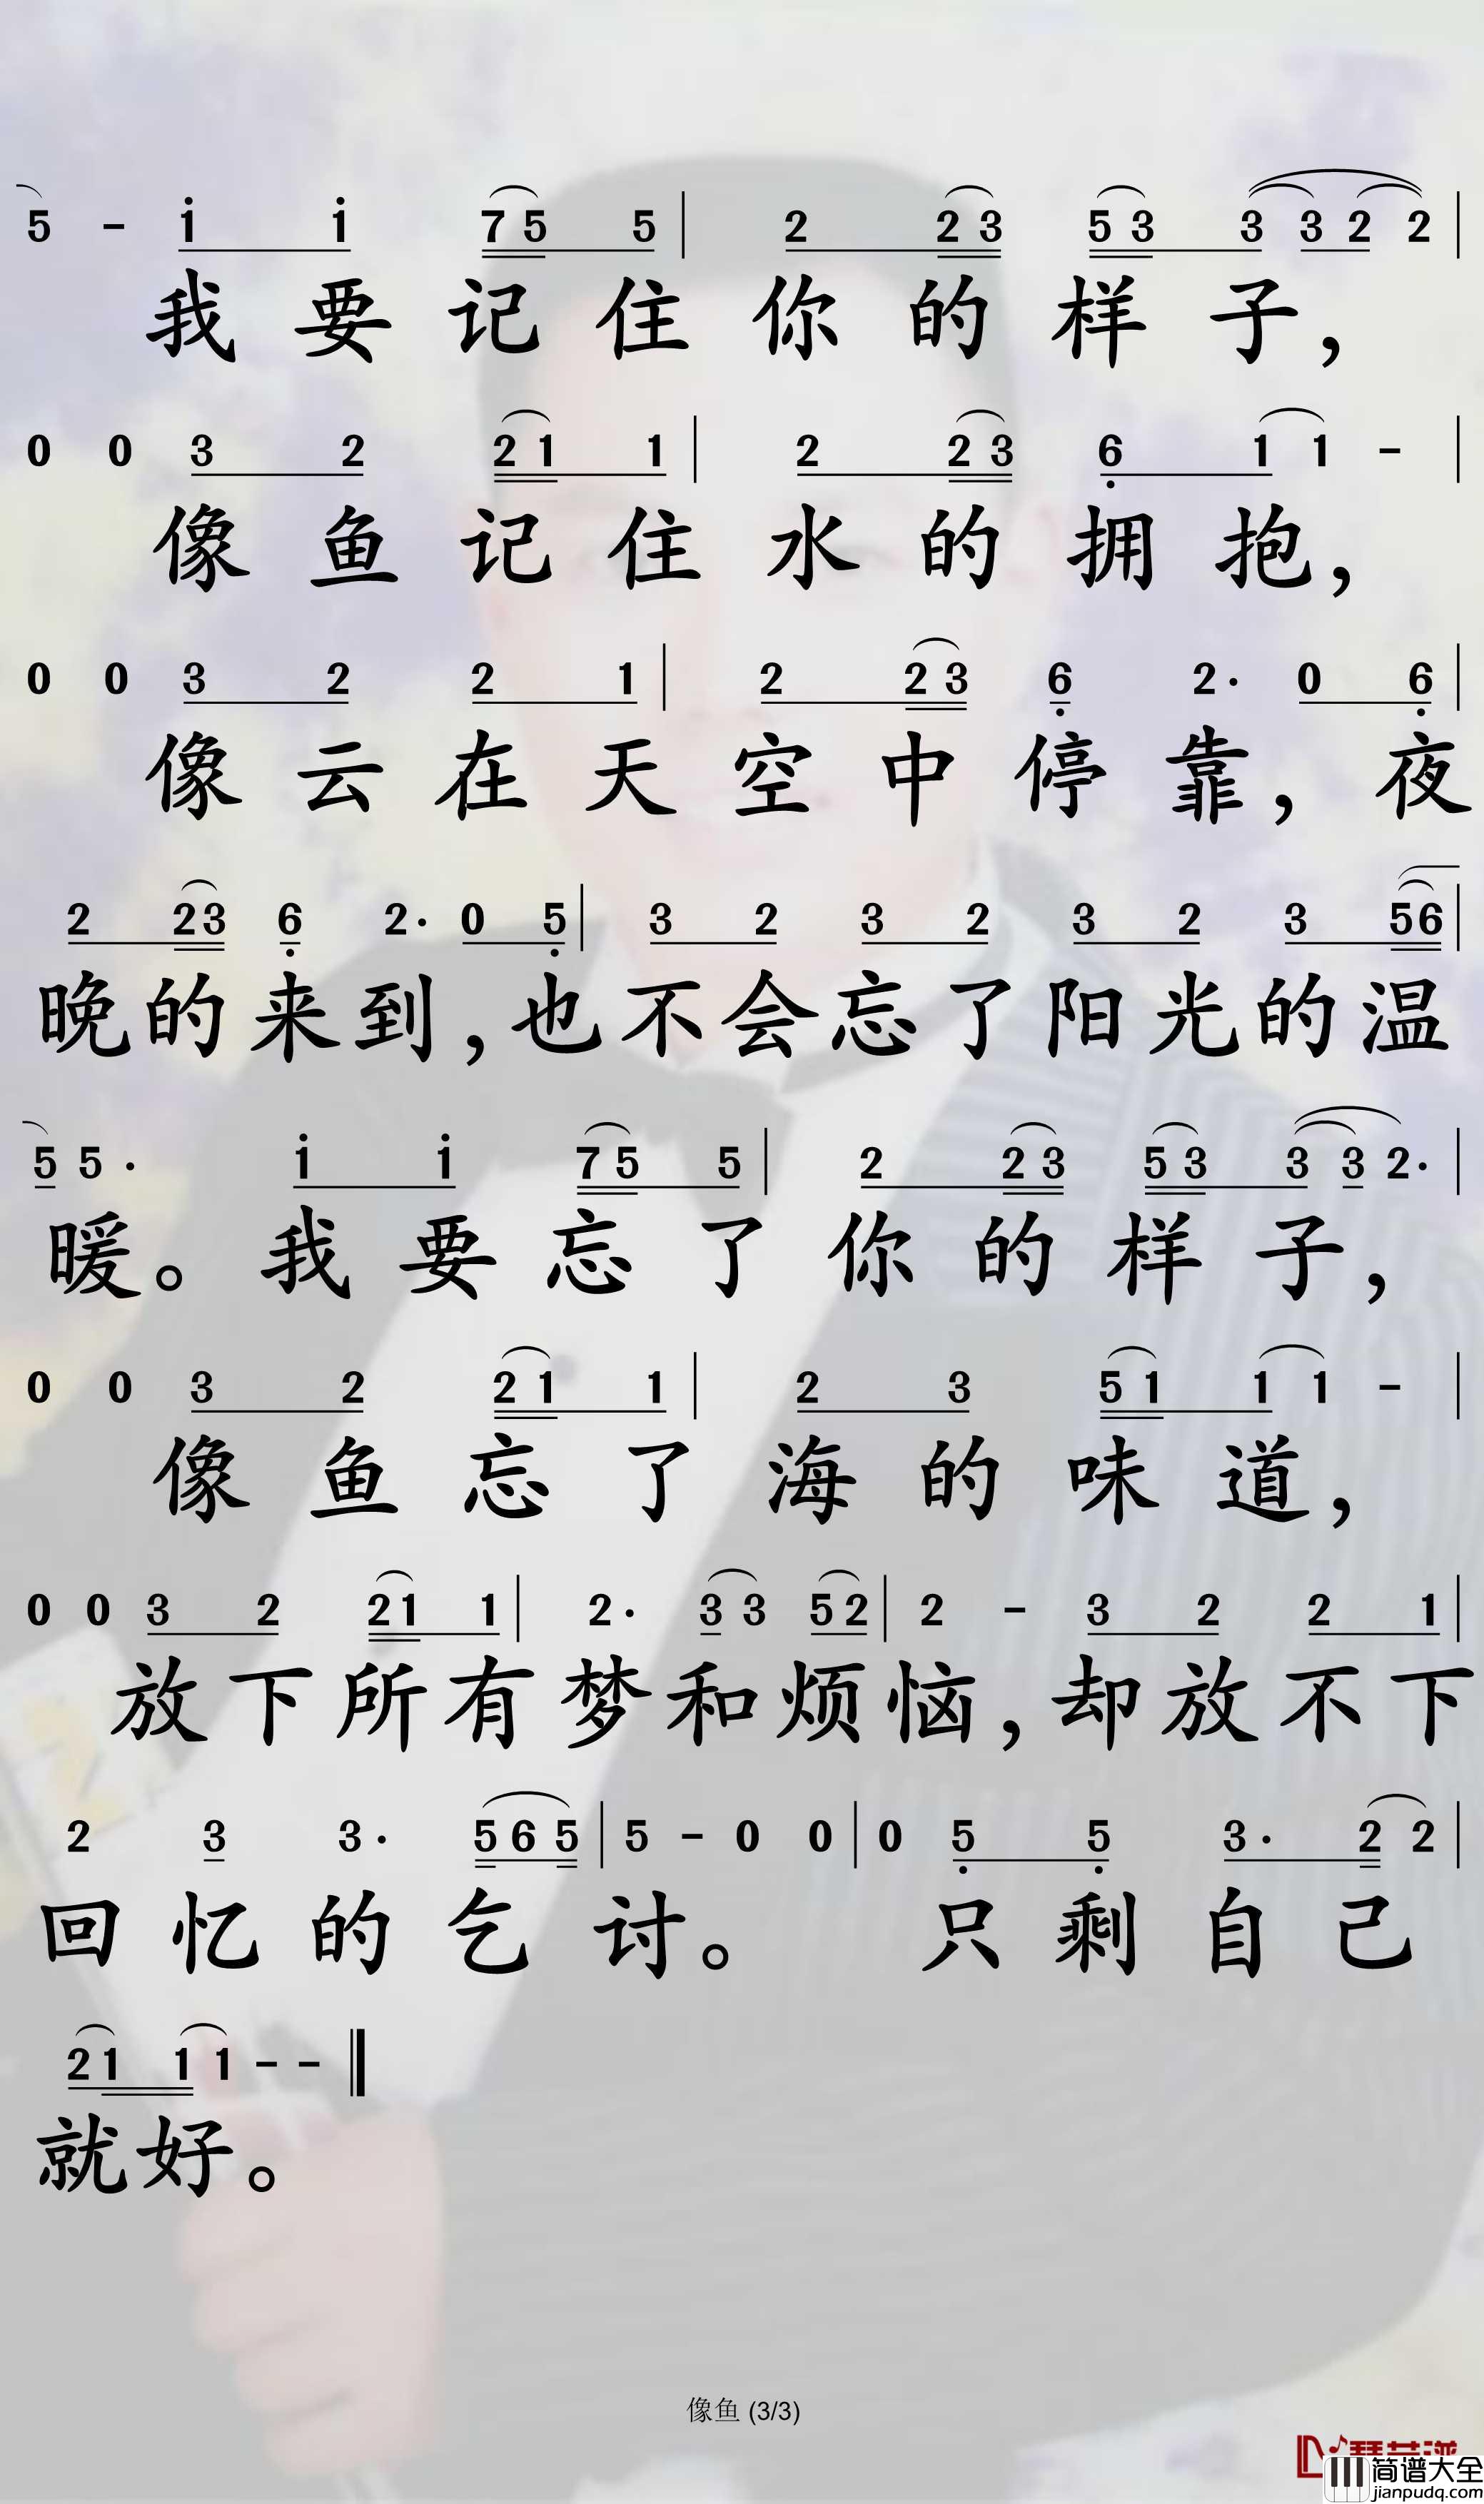 5 - i i 7 5 5 | 2 2 3 5 3 3 3 2 2 |
我要记住你的样子，
0 0 3 2 2 1 1 | 2 2 3 6 1 1 - |
像鱼记住水的拥抱，
0 0 3 2 2 1 | 2 2 3 6 2. 0 6 |
像云在天空中停靠，夜
2 2 3 6 2. 0 5 | 3 2 3 2 3 2 3 5 6 |
晚的来到，也不会忘了阳光的温
5 5. i i 7 5 5 | 2 2 3 5 3 3 3 2. |
暖。我要忘了你的样子，
0 0 3 2 2 1 1 | 2 3 5 1 1 1 - |
像鱼忘了海的味道，
0 0 3 2 2 1 1 | 2. 3 3 5 2 | 2 - 3 2 2 1 |
放下所有梦和烦恼，却放不下
2 3 3. 5 6 5 | 5 - 0 0 | 0 5 5 3. 2 2 |
回忆的乞讨。只剩自己
2 1 1 1 - - ||
就好。
像鱼 (3/3)
简谱大全
jianpudq.com